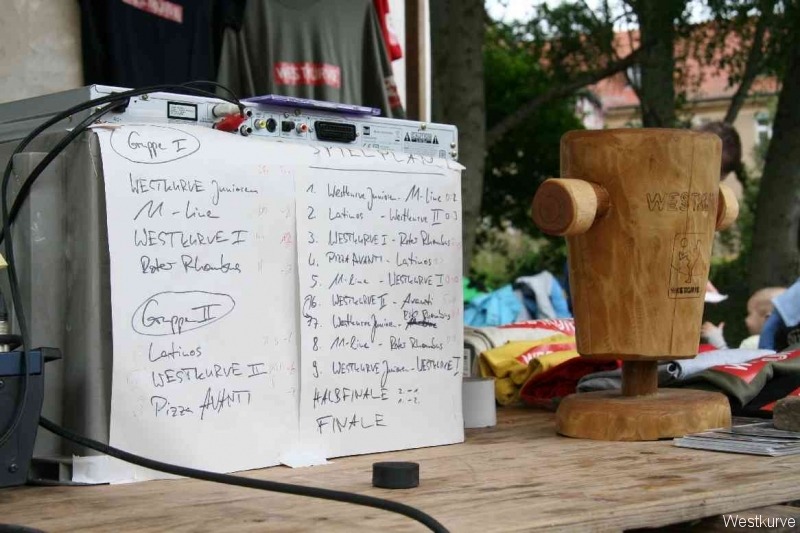 WESTKURVE
Gruppe I
WESTKURVE Junioren
M-Line
WESTKURVE I
Roter Rhombus
Gruppe II
Latinos
WESTKURVE II
Pizza AVANTI
1. Westkurve Junioren - M-Line 0:2
2 Latinos - Westkurve II 0:3
3. WESTKURVE I - Roter Rhombus
4. PIZZA AVANTI - Latinos
5. M-Line - WESTKURVE I
6. WESTKURVE II - Avanti
7. Westkurve Junioren - Rot. Rhombus
8 M-Line - Roter Rhombus
9 WESTKURVE Junioren - WESTKURVE I
HALBFINALE 2.-1.
1.-2.
FINALE
WESTKURVE
Westkurve